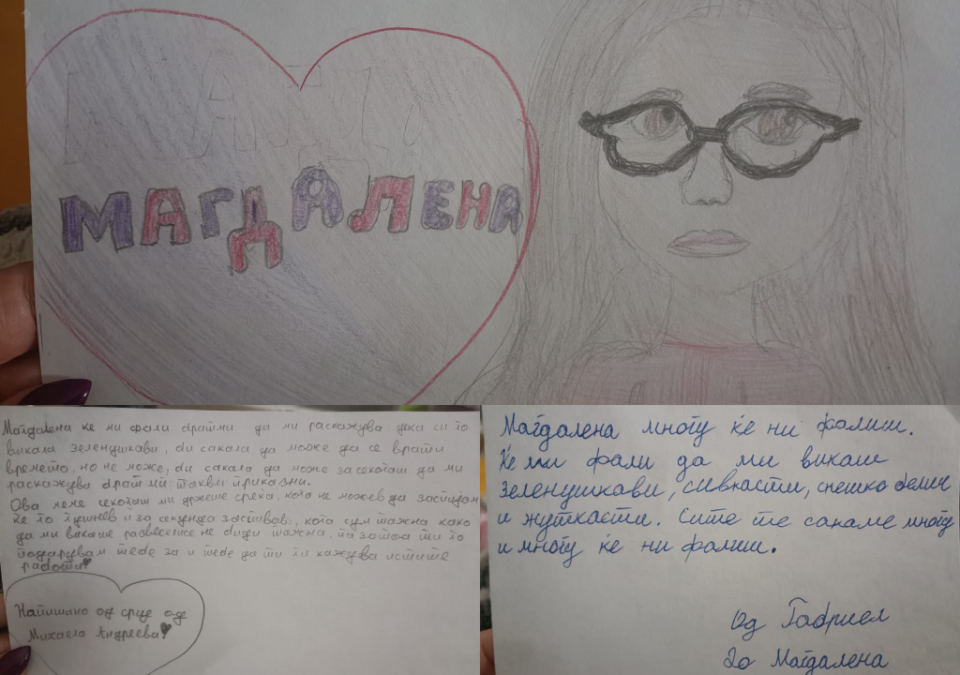 МАГДАЛЕНА
Магдалена ќе ми фали да ми раскажува дека си го
викала зеленушкави, би сакала да може да се врати
времето, но не може, би сакала да може засекогаш да ми
раскажува такви приказни.
Ова меме секогаш ми држеше среќа, кога не можев да заспијам
ќе го гушнев и за секунда заспивав, кога сум тажна како
да ми викаше развесели се не биди тажна, па затоа ти го
подарувам тебе за и тебе да ти ги кажува истите
радости
Напишано од срце од
Михаела Андреева
Магдалена многу ќе ни фалиш.
Ќе ми фали да ми викаш
зеленушкави, сивкасти, снешко белич
и жуткасти. Сите те сакаме многу
и многу ќе ни фалиш.
Од Габриел
До Магдалена